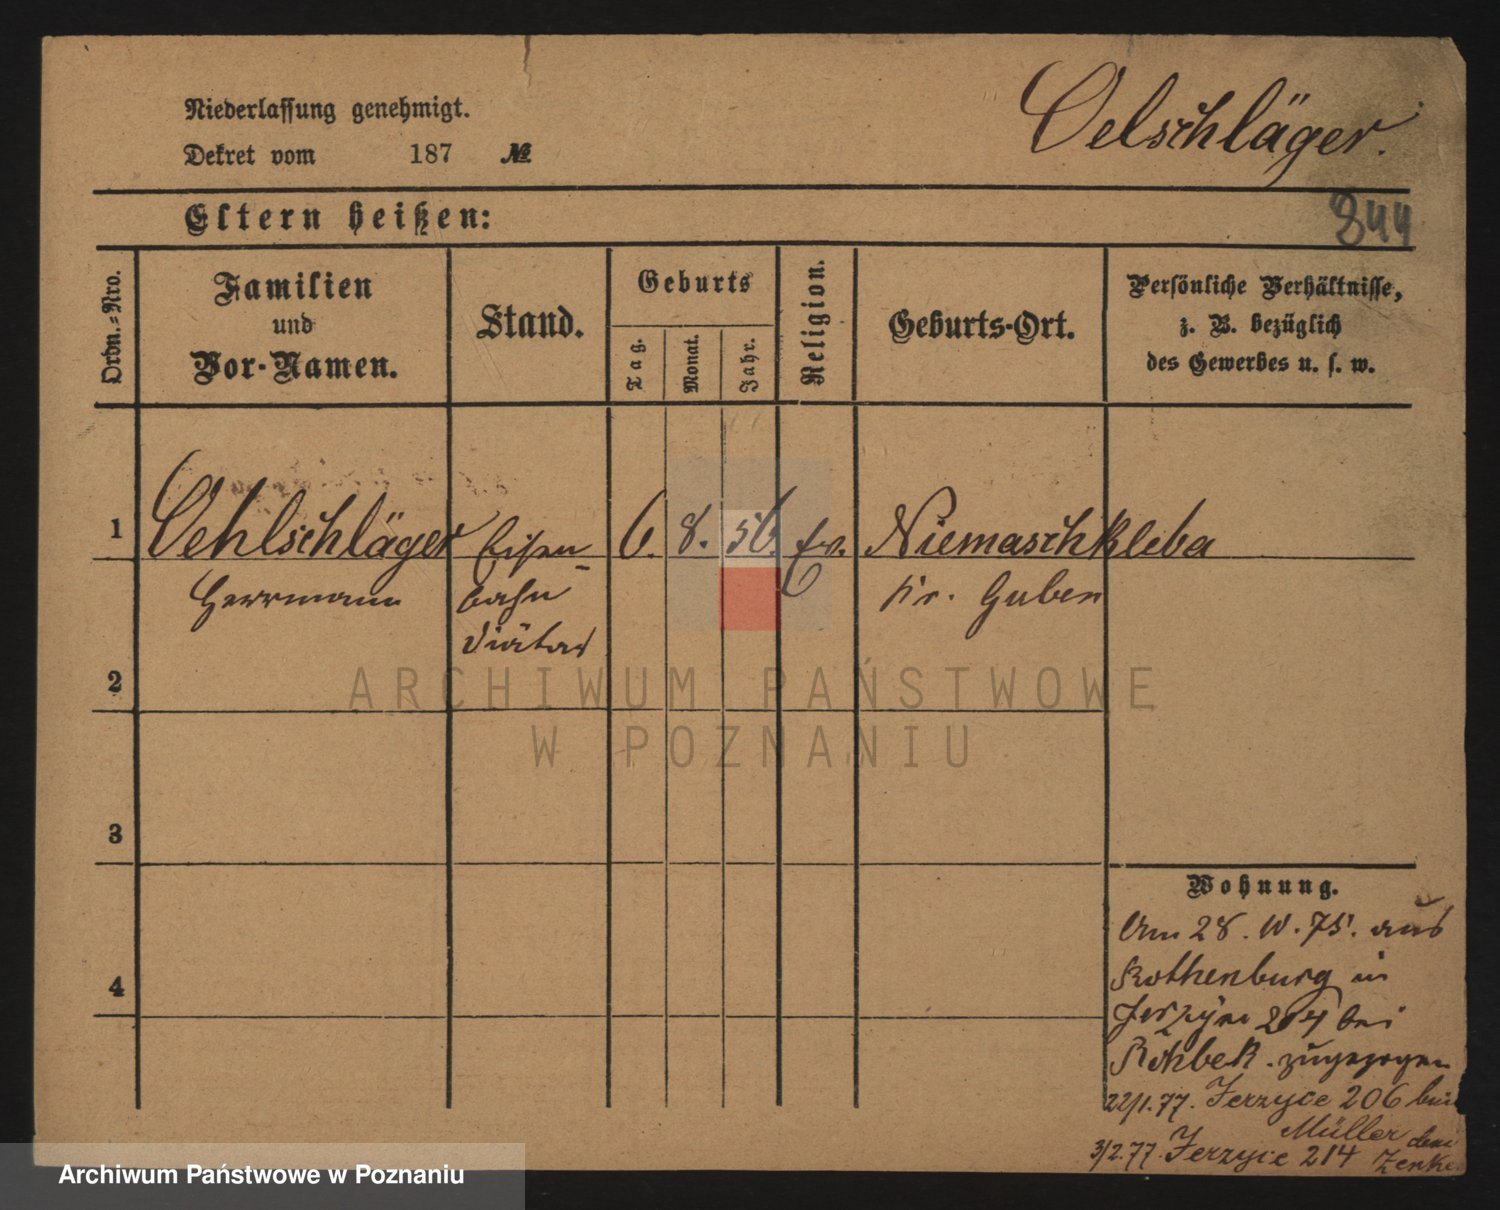 Niederlassung genehmigt.
Oelschläger.
Dekret vom 187 №
Eltern heißen:
844
Ordn.-Nro.
Familien
und
Vor-Namen.
Stand.
Geburts
Tag.
Monat.
Jahr.
Religion.
Geburts-Ort.
Persönliche Verhältnisse,
z. B. bezüglich
des Gewerbes u. s. w.
1 Oehlschläger Eisen- 6. 8. 56. ev. Niemaschkleba
Herrmann bahn Kr. Guben
Diätar
2
ARCHIWUM PAŃSTWOWE
W POZNANIU
3
Wohnung.
Am 28. 10. 75. aus
Rothenburg in
4
Jerzyce 204 bei
zugezogen
22/1.77. Jerzyce 206 bei
Müller
3/2.77. Jerzyce 214 Zenke
Archiwum Państwowe w Poznaniu